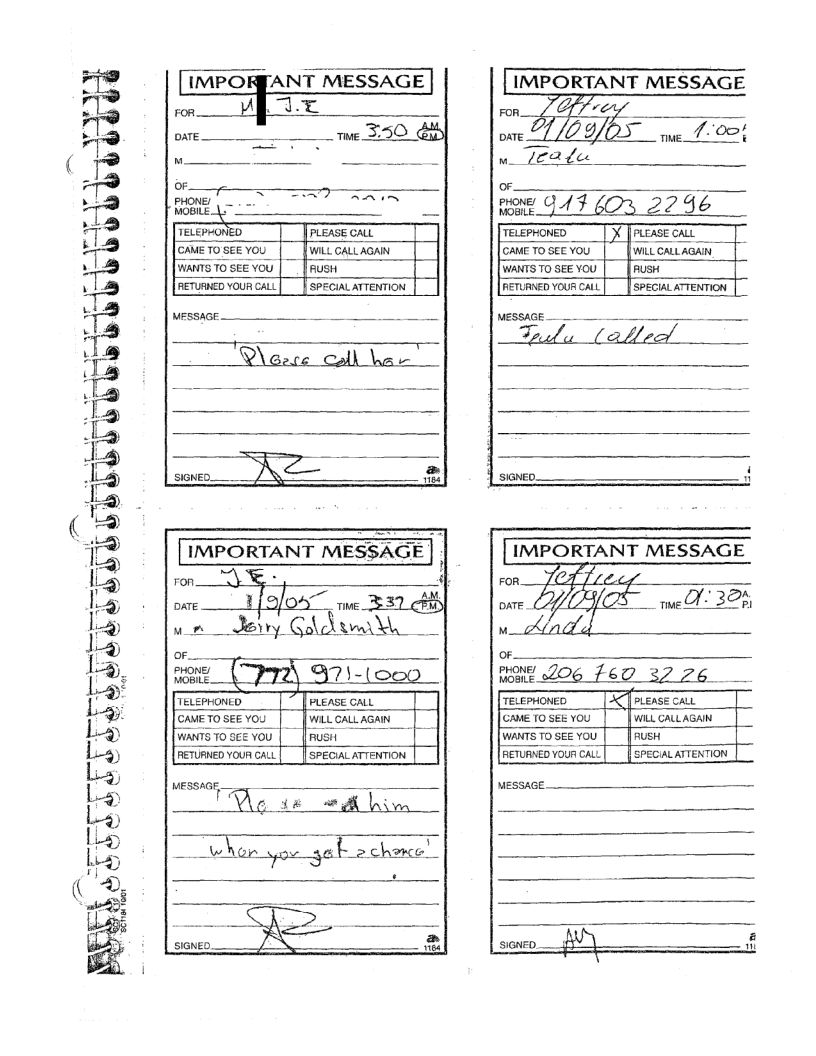 IMPORTANT MESSAGE
FOR M . J.E
DATE TIME 3:50 A.M. P.M.
M
OF
PHONE/
MOBILE
TELEPHONED PLEASE CALL
CAME TO SEE YOU WILL CALL AGAIN
WANTS TO SEE YOU RUSH
RETURNED YOUR CALL SPECIAL ATTENTION
MESSAGE
Please call her
SIGNED
1184
IMPORTANT MESSAGE
FOR Jeffrey
DATE 01/09/05 TIME 1:00
M
OF
PHONE/
MOBILE 917 603 2296
TELEPHONED X PLEASE CALL
CAME TO SEE YOU WILL CALL AGAIN
WANTS TO SEE YOU RUSH
RETURNED YOUR CALL SPECIAL ATTENTION
MESSAGE
called
SIGNED
11
IMPORTANT MESSAGE
FOR J E.
DATE 1/9/05 TIME 3:37 A.M. P.M.
M r. Jerry Goldsmith
OF
PHONE/
MOBILE (772) 971-1000
TELEPHONED PLEASE CALL
CAME TO SEE YOU WILL CALL AGAIN
WANTS TO SEE YOU RUSH
RETURNED YOUR CALL SPECIAL ATTENTION
MESSAGE
him
when you get a chance
SIGNED
1184
IMPORTANT MESSAGE
FOR Jeffrey
DATE 01/09/05 TIME 01:30 A. P.
M Linda
OF
PHONE/
MOBILE 206 760 3226
TELEPHONED X PLEASE CALL
CAME TO SEE YOU WILL CALL AGAIN
WANTS TO SEE YOU RUSH
RETURNED YOUR CALL SPECIAL ATTENTION
MESSAGE
SIGNED